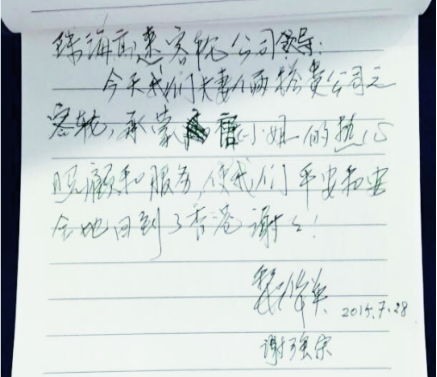 珠海高速客轮公司领导:
今天我们夫妻人两搭贵公司之
客轮,承蒙唐小姐的热心
照顾和服务,使我们平安和安
全地回到了香港谢谢!
2015.7.28
谢强宗